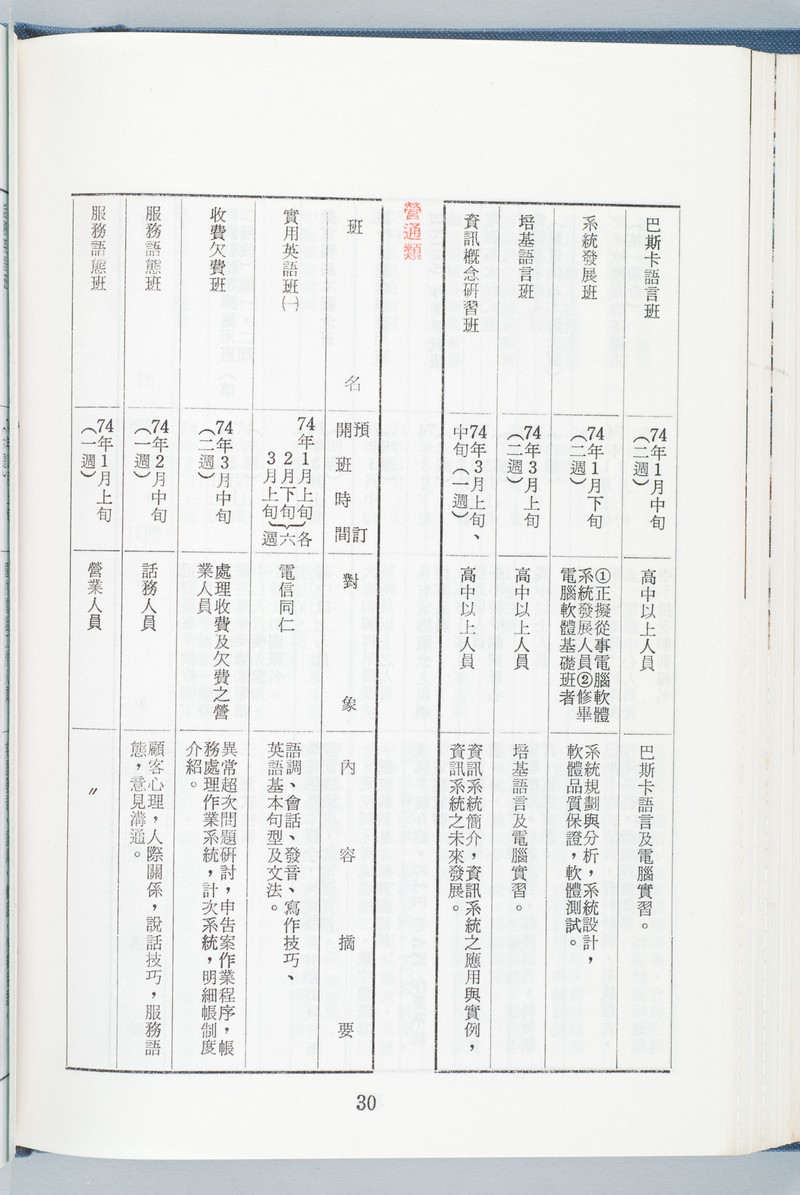 巴斯卡語言班
74年1月中旬
(二週)
高中以上人員
巴斯卡語言及電腦實習。
系統發展班
74年1月下旬
(二週)
①正擬從事電腦軟體
系統發展人員②修畢
電腦軟體基礎班者
系統規劃與分析，系統設計，
軟體品質保證，軟體測試。
培基語言班
74年3月上旬
(二週)
高中以上人員
培基語言及電腦實習。
資訊概念研習班
74年3月上旬、
中旬(一週)
高中以上人員
資訊系統簡介，資訊系統之應用與實例，
資訊系統之未來發展。
營通類
班名
預訂
開班時間
對象
內容摘要
實用英語班㈠
74年1月上旬
2月下旬
3月上旬
各六週
電信同仁
語調、會話、發音、寫作技巧、
英語基本句型及文法。
收費欠費班
74年3月中旬
(二週)
處理收費及欠費之營
業人員
異常超次問題研討，申告案作業程序，帳
務處理作業系統，計次系統，明細帳制度
介紹。
服務語態班
74年2月中旬
(一週)
話務人員
顧客心理，人際關係，說話技巧，服務語
態，意見溝通。
服務語態班
74年1月上旬
(一週)
營業人員
〃
30